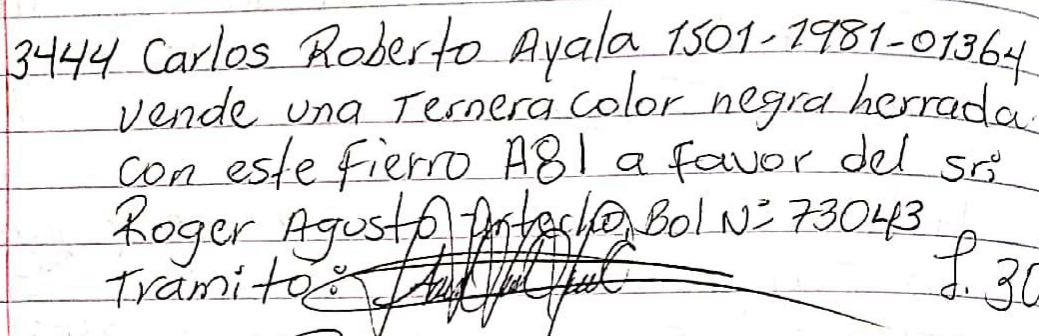 3444 Carlos Roberto Ayala 1501-1981-01364
vende una Ternera color negra herrada
con este fierro A81 a favor del sr:
Roger Agusto Bol Nº 73043
Tramito:
L. 30